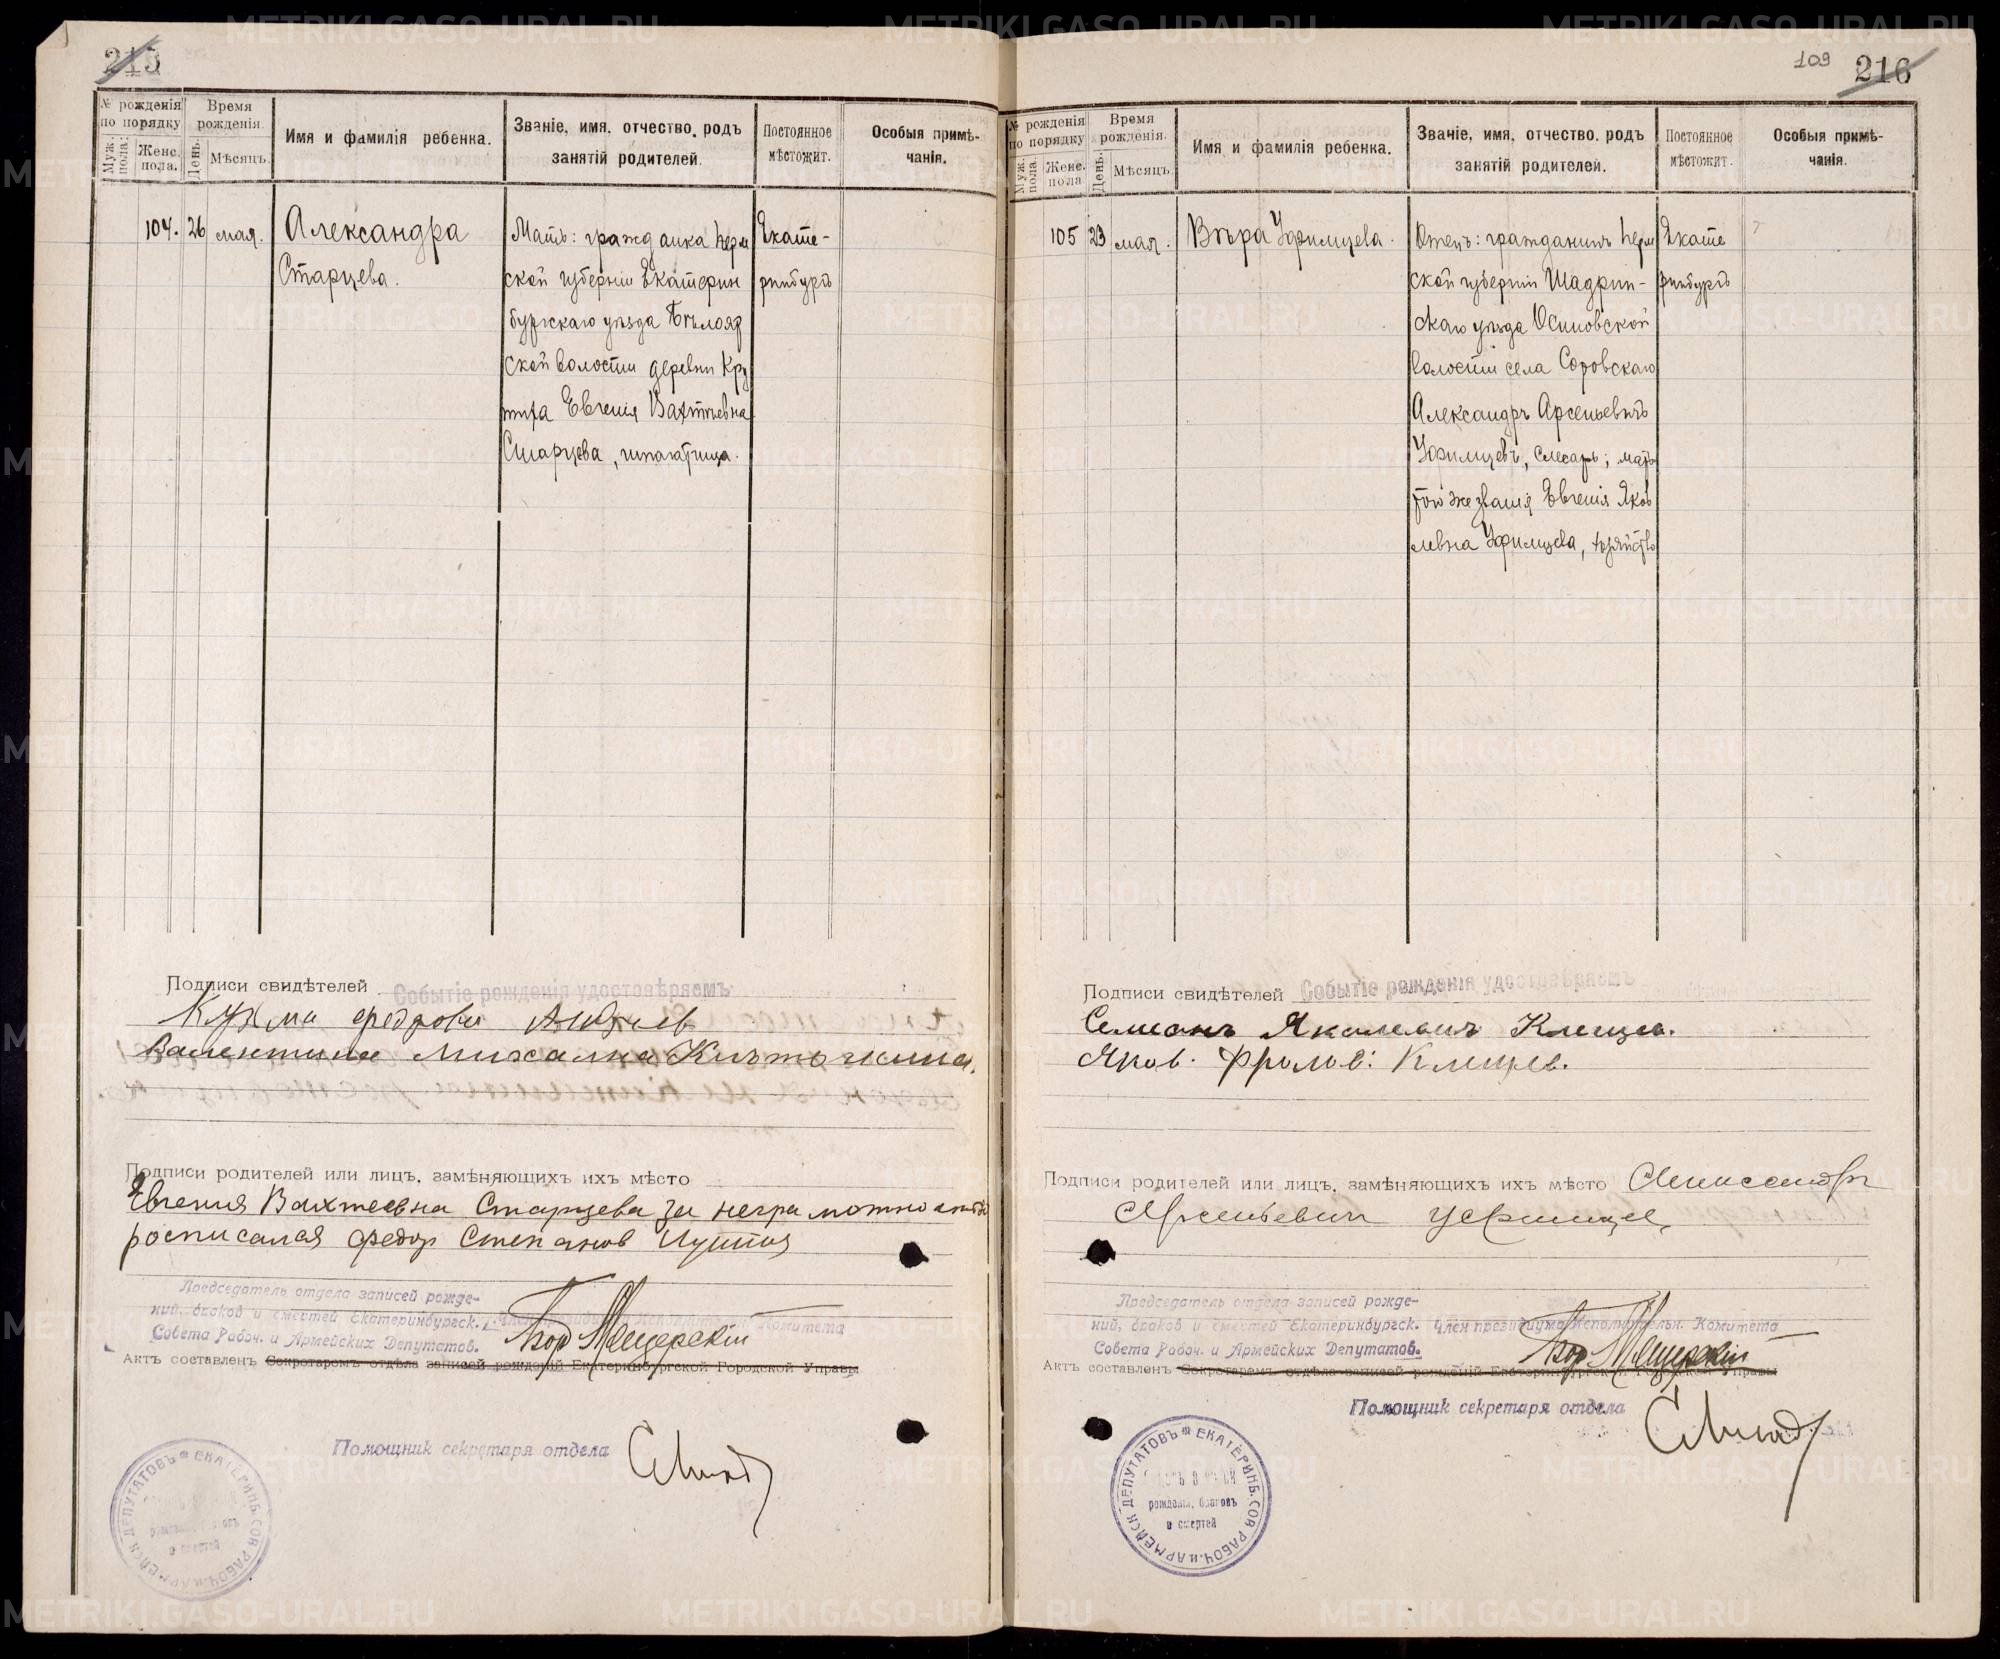 215
№ рожденія по порядку
Муж. пола.
Женс. пола.
Время рожденія.
День.
Мѣсяцъ.
Имя и фамилія ребенка.
Званіе, имя, отчество, родъ
занятій родителей.
Постоянное
мѣстожит.
Особыя примѣ-
чанія.
104.
26
мая.
Александра
Старцева.
Мать: гражданка Перм
ской губерніи Екатерин
бургскаго уѣзда Бѣлояр
ской волости деревни Кру
тиха Евгенія Вахтѣевна
Старцева,
Екате-
ринбургъ
Подписи свидѣтелей
Событіе рожденія удостовѣряемъ
Кузма Федрови
Валентина Михална
Подписи родителей или лицъ, замѣняющихъ ихъ мѣсто
Евгения Вахтеевна Старцева за
росписался Федор Степанов
Председатель отдела записей рожде-
ний, браков и смертей Екатеринбургск.
Совета Рабоч. и Армейских Депутатов.
Комитета
Актъ составленъ Секретаремъ отдѣла записей рожденій Екатеринбургской Городской Управы
Помощник секретаря отдела
ЕКАТЕРИНБ. СОВ. РАБОЧ. и АРМЕЙСК. ДЕПУТАТОВЪ
и смертей
109
216
№ рожденія по порядку
Муж. пола.
Женс. пола
Время рожденія.
День.
Мѣсяцъ.
Имя и фамилія ребенка.
Званіе, имя, отчество, родъ
занятій родителей.
Постоянное
мѣстожит.
Особыя примѣ-
чанія.
105
23
мая.
Вѣра Уфимцева.
Отецъ: гражданинъ Перм
ской губерніи Шадрин-
скаго уѣзда Осиновской
волости села Соровскаго
Александръ Арсеньевичъ
Уфимцевъ, слесарь; мать
того же званія Евгенія Яков
левна Уфимцева, хозяйство
Екате
ринбургъ
Подписи свидѣтелей
Событіе рожденія удостовѣряемъ
Семионъ Яковлевич Клещев.
Яков. Фролов: Клещев.
Подписи родителей или лицъ, замѣняющихъ ихъ мѣсто Александръ
Арсеньевич Уфимцев
Председатель отдела записей рожде-
ний, браков и смертей Екатеринбургск. Член президиума Исполнительн. Комитета
Совета Рабоч. и Армейских Депутатов.
Актъ составленъ Секретаремъ отдѣла записей рожденій Екатеринбургской Городской Управы
Помощник секретаря отдела
ЕКАТЕРИНБ. СОВ. РАБОЧ. и АРМЕЙСК. ДЕПУТАТОВЪ
рожденія, браковъ
и смертей
METRIKI.GASO-URAL.RU